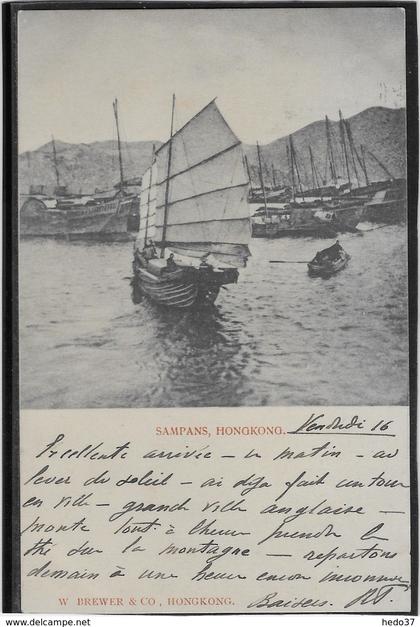 SAMPANS, HONGKONG. Vendredi 16
Excellente arrivée - ce matin - au
lever du soleil - ai déja fait un tour
en ville - grande ville anglaise -
monte tout à l'heure prendre le
thé sur la montagne - repartons
demain à une heure encore inconnue
W BREWER & CO, HONGKONG. Baisers.
delcampe.net
hedo37